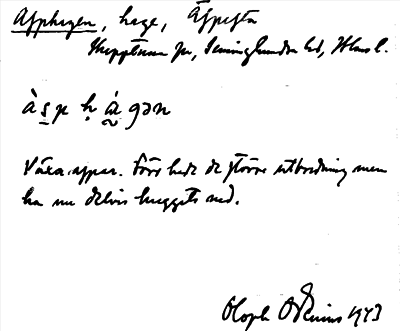 Asphagen, hage, Äspesta
Skepptuna sn, Seminghundra hd, Uppl.
à s p h á gən
Växa aspar. Förr hade de större utbredning men
ha nu delvis huggets ned.
Oloph Odenius 1943